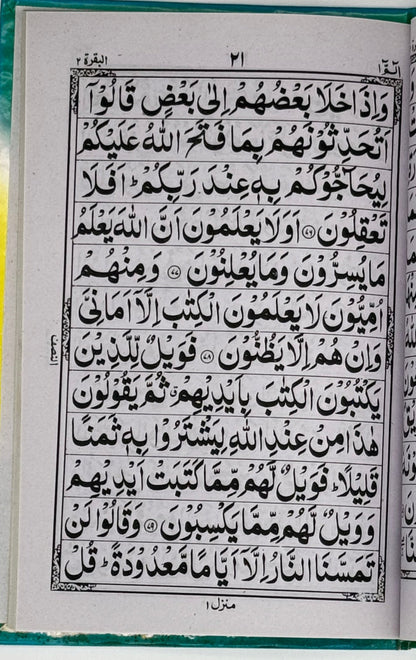 الٓمّٓ ١ ٢١ البقرة ٢
وَاِذَا خَلَا بَعْضُهُمْ اِلٰى بَعْضٍ قَالُوْٓا
اَتُحَدِّثُوْنَهُمْ بِمَا فَتَحَ اللّٰهُ عَلَيْكُمْ
لِيُحَآجُّوْكُمْ بِهٖ عِنْدَ رَبِّكُمْ ؕ اَفَلَا
تَعْقِلُوْنَ ﴿۷۶﴾ اَوَلَا يَعْلَمُوْنَ اَنَّ اللّٰهَ يَعْلَمُ
مَا يُسِرُّوْنَ وَمَا يُعْلِنُوْنَ ﴿۷۷﴾ وَمِنْهُمْ
اُمِّيُّوْنَ لَا يَعْلَمُوْنَ الْكِتٰبَ اِلَّآ اَمَانِىَّ
وَاِنْ هُمْ اِلَّا يَظُنُّوْنَ ﴿۷۸﴾ فَوَيْلٌ لِّلَّذِيْنَ
يَكْتُبُوْنَ الْكِتٰبَ بِاَيْدِيْهِمْ ۗ ثُمَّ يَقُوْلُوْنَ
هٰذَا مِنْ عِنْدِ اللّٰهِ لِيَشْتَرُوْا بِهٖ ثَمَنًا
قَلِيْلًا ؕ فَوَيْلٌ لَّهُمْ مِّمَّا كَتَبَتْ اَيْدِيْهِمْ
وَوَيْلٌ لَّهُمْ مِّمَّا يَكْسِبُوْنَ ﴿۷۹﴾ وَقَالُوْا لَنْ
تَمَسَّنَا النَّارُ اِلَّآ اَيَّامًا مَّعْدُوْدَةً ؕ قُلْ
منزل ١
النصف